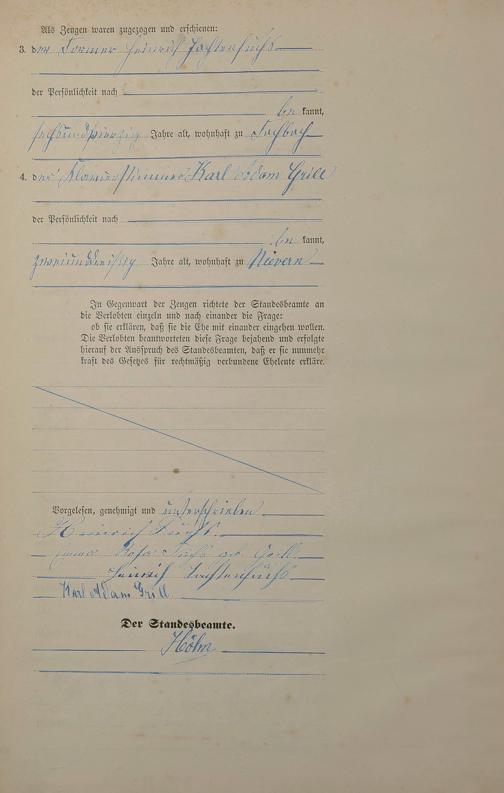 Als Zeugen waren zugezogen und erschienen:
3. der Former Heinrich Fachtenfuchs
der Persönlichkeit nach
be kannt,
sechsundvierzig Jahre alt, wohnhaft zu Fachbach
4. der Klavierstimmer Karl Adam Grill
der Persönlichkeit nach
be kannt,
zweiunddreißig Jahre alt, wohnhaft zu Nievern
In Gegenwart der Zeugen richtete der Standesbeamte an
die Verlobten einzeln und nach einander die Frage:
ob sie erklären, daß sie die Ehe mit einander eingehen wollen.
Die Verlobten beantworteten diese Frage bejahend und erfolgte
hierauf der Ausspruch des Standesbeamten, daß er sie nunmehr
kraft des Gesetzes für rechtmäßig verbundene Eheleute erkläre.
Vorgelesen, genehmigt und unterschrieben
Heinrich Fuchs.
Rosa Fuchs geb. Grill
Heinrich Fachtenfuchs
Karl Adam Grill
Der Standesbeamte.
Höhn